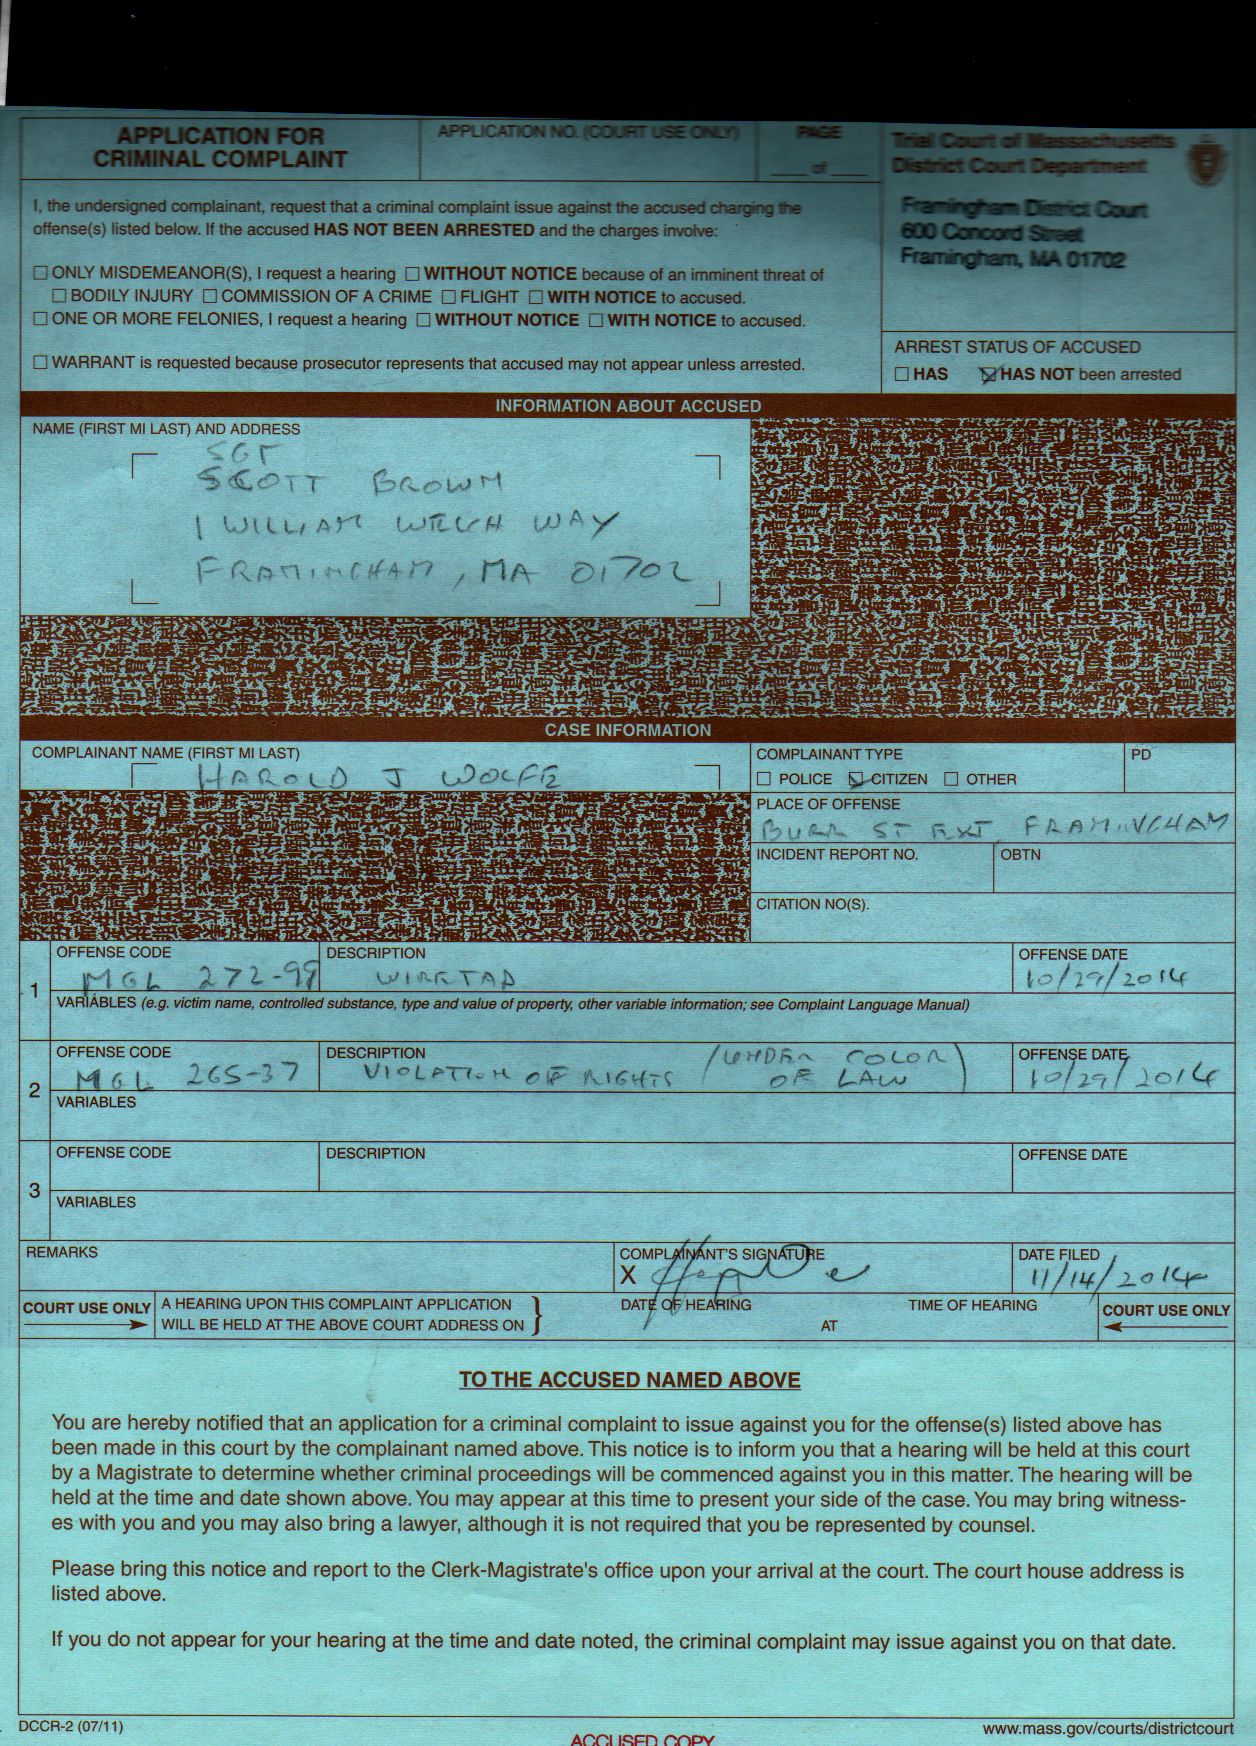 APPLICATION FOR
CRIMINAL COMPLAINT
APPLICATION NO. (COURT USE ONLY)
PAGE
____ of ____
Trial Court of Massachusetts
District Court Department
Framingham District Court
600 Concord Street
Framingham, MA 01702
I, the undersigned complainant, request that a criminal complaint issue against the accused charging the
offense(s) listed below. If the accused HAS NOT BEEN ARRESTED and the charges involve:
☐ ONLY MISDEMEANOR(S), I request a hearing ☐ WITHOUT NOTICE because of an imminent threat of
☐ BODILY INJURY ☐ COMMISSION OF A CRIME ☐ FLIGHT ☐ WITH NOTICE to accused.
☐ ONE OR MORE FELONIES, I request a hearing ☐ WITHOUT NOTICE ☐ WITH NOTICE to accused.
☐ WARRANT is requested because prosecutor represents that accused may not appear unless arrested.
ARREST STATUS OF ACCUSED
☐ HAS ☒ HAS NOT been arrested
INFORMATION ABOUT ACCUSED
NAME (FIRST MI LAST) AND ADDRESS
SGT
SCOTT BROWN
1 WILLIAM WELCH WAY
FRAMINGHAM, MA 01702
CASE INFORMATION
COMPLAINANT NAME (FIRST MI LAST)
HAROLD J WOLFE
COMPLAINANT TYPE
☐ POLICE ☒ CITIZEN ☐ OTHER
PD
PLACE OF OFFENSE
BURR ST EXT, FRAMINGHAM
INCIDENT REPORT NO.
OBTN
CITATION NO(S).
1
OFFENSE CODE
MGL 272-99
DESCRIPTION
WIRETAP
OFFENSE DATE
10/29/2014
VARIABLES (e.g. victim name, controlled substance, type and value of property, other variable information; see Complaint Language Manual)
2
OFFENSE CODE
MGL 265-37
DESCRIPTION
VIOLATION OF RIGHTS (UNDER COLOR
OF LAW)
OFFENSE DATE
10/29/2014
VARIABLES
3
OFFENSE CODE
DESCRIPTION
OFFENSE DATE
VARIABLES
REMARKS
COMPLAINANT'S SIGNATURE
X
DATE FILED
11/14/2014
COURT USE ONLY
A HEARING UPON THIS COMPLAINT APPLICATION
WILL BE HELD AT THE ABOVE COURT ADDRESS ON
DATE OF HEARING
AT
TIME OF HEARING
COURT USE ONLY
TO THE ACCUSED NAMED ABOVE
You are hereby notified that an application for a criminal complaint to issue against you for the offense(s) listed above has
been made in this court by the complainant named above. This notice is to inform you that a hearing will be held at this court
by a Magistrate to determine whether criminal proceedings will be commenced against you in this matter. The hearing will be
held at the time and date shown above. You may appear at this time to present your side of the case. You may bring witness-
es with you and you may also bring a lawyer, although it is not required that you be represented by counsel.
Please bring this notice and report to the Clerk-Magistrate's office upon your arrival at the court. The court house address is
listed above.
If you do not appear for your hearing at the time and date noted, the criminal complaint may issue against you on that date.
DCCR-2 (07/11)
www.mass.gov/courts/districtcourt
ACCUSED COPY